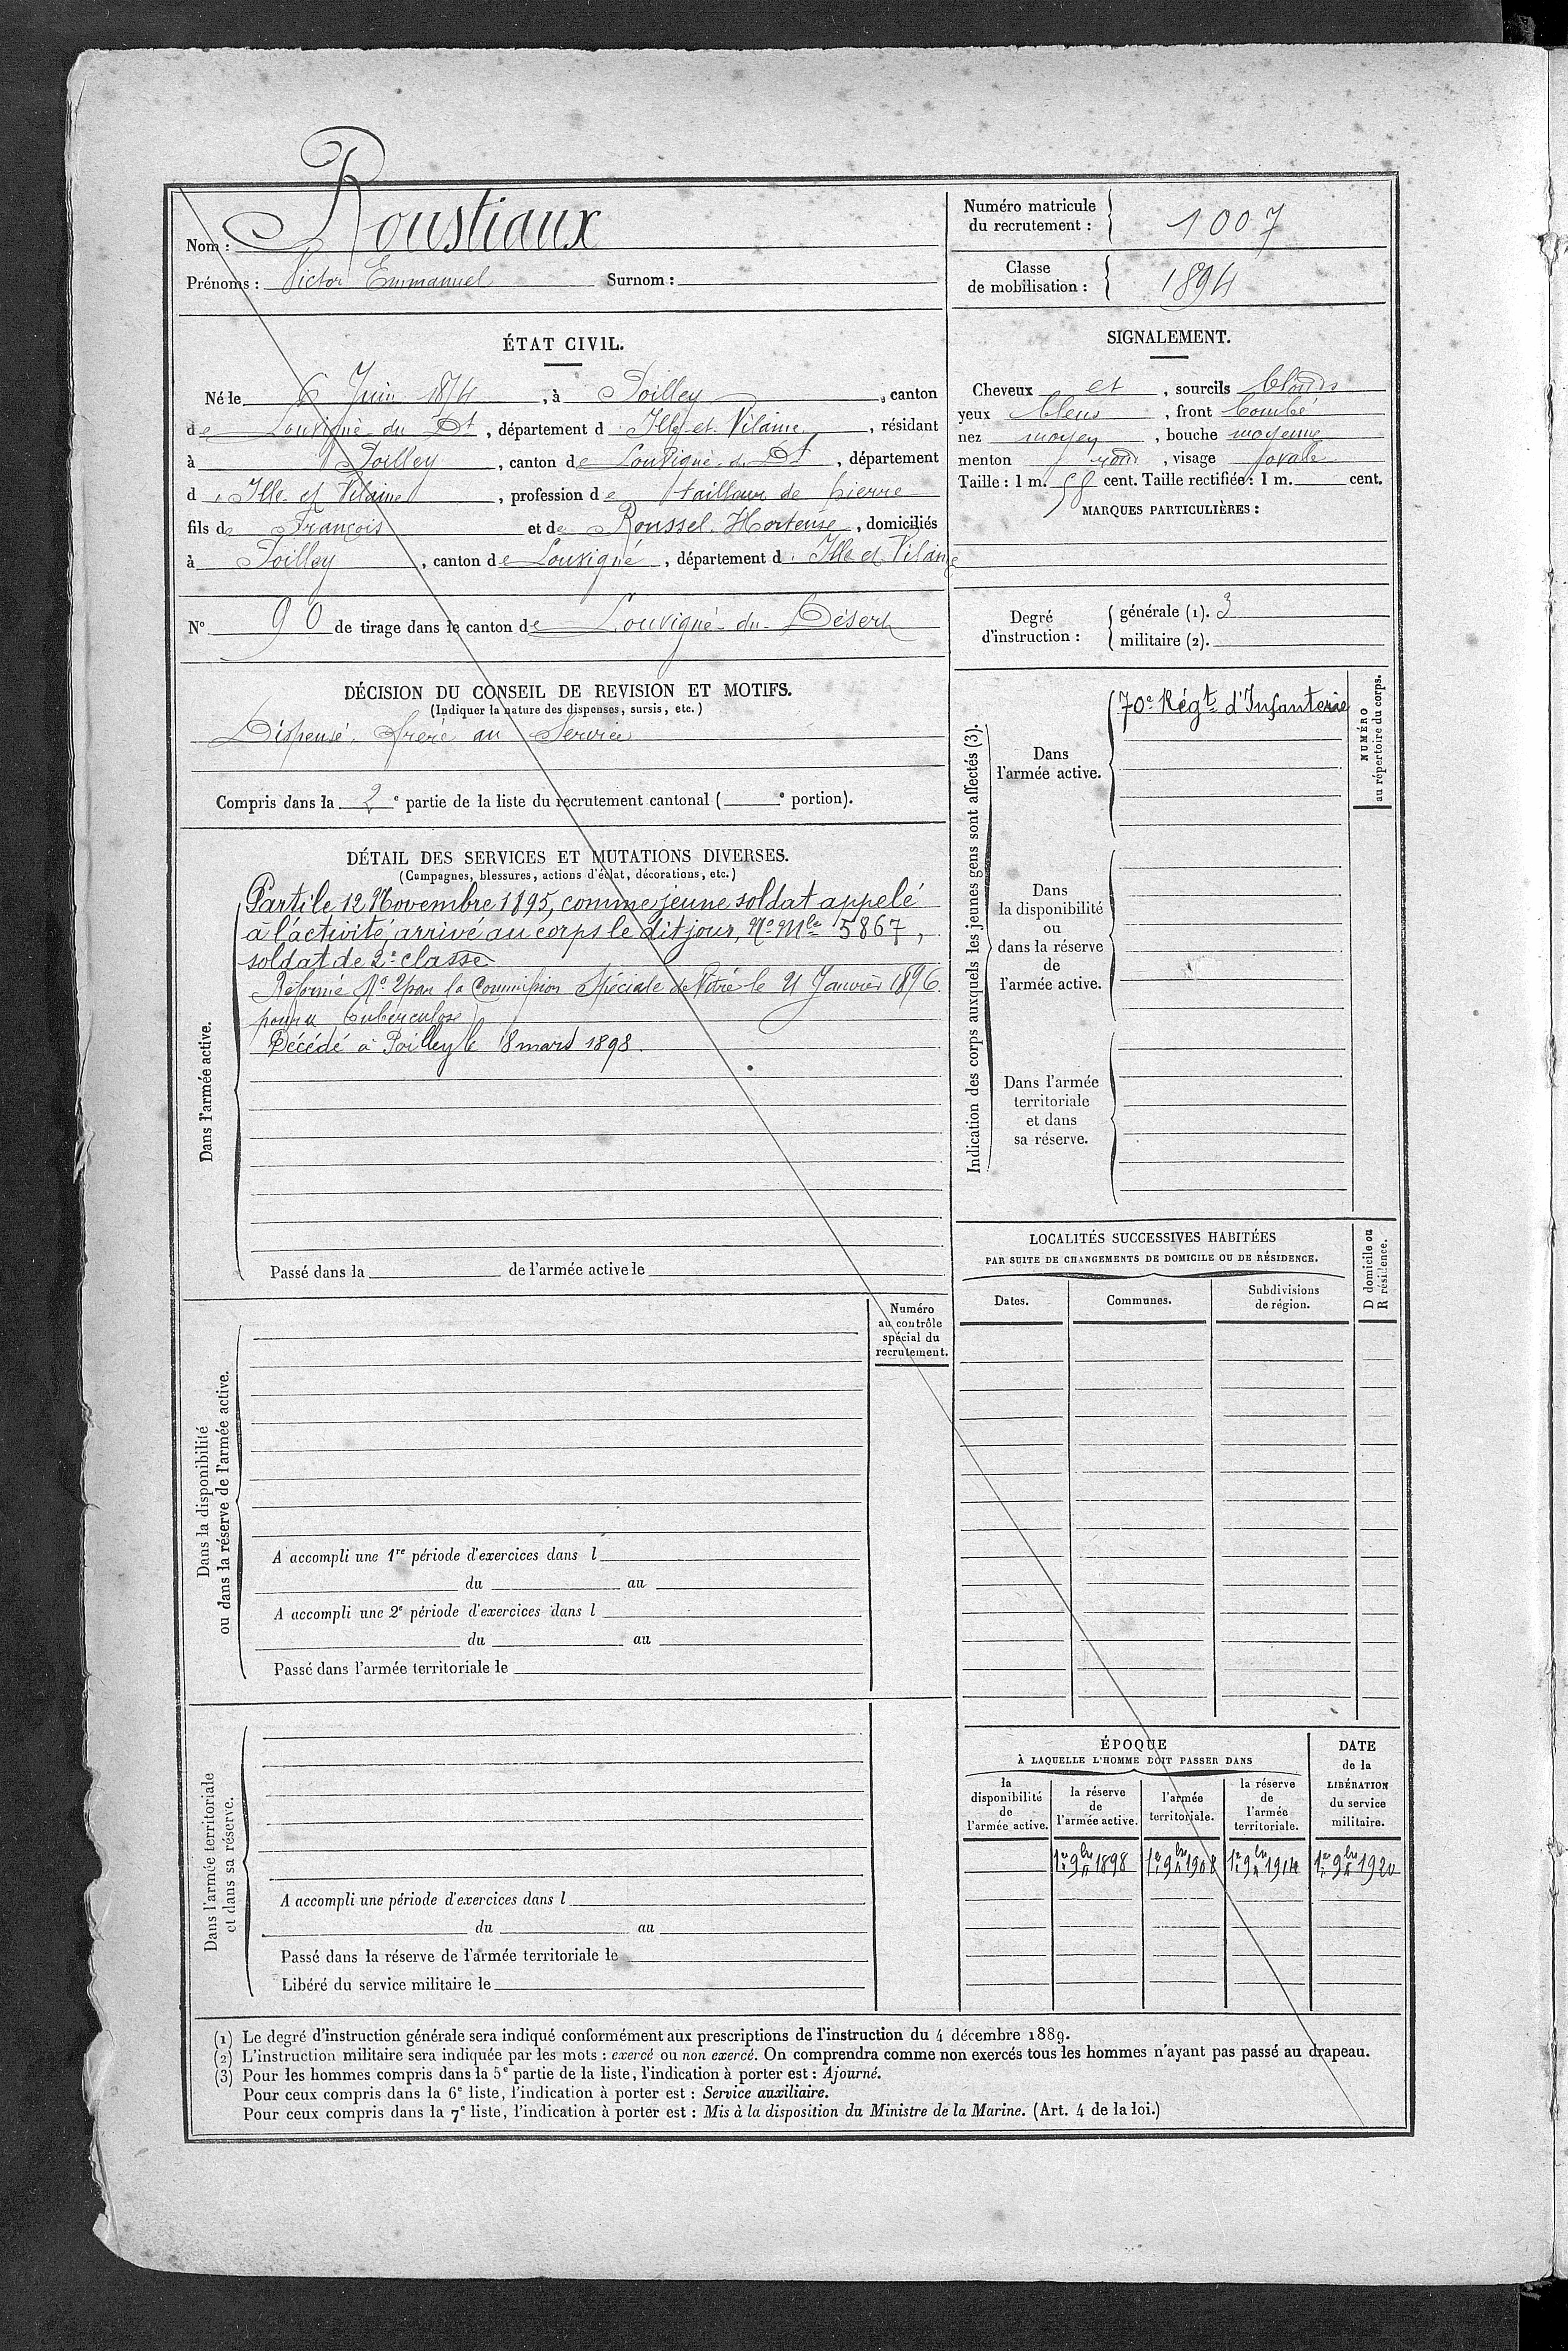 Nom : Roustiaux
Prénoms : Victor Emmanuel Surnom :
Numéro matricule
du recrutement : 1007
Classe
de mobilisation : 1894
ÉTAT CIVIL.
Né le 6 Juin 1874, à Poilley, canton
de Louvigné du Dt, département d Ille et Vilaine, résidant
à Poilley, canton de Louvigné du Dt, département
d Ille et Vilaine, profession de tailleur de pierre
fils de François et de Roussel Hortense, domiciliés
à Poilley, canton de Louvigné, département d Ille et Vilaine
N° 90 de tirage dans le canton de Louvigné-du-Désert
DÉCISION DU CONSEIL DE REVISION ET MOTIFS.
(Indiquer la nature des dispenses, sursis, etc.)
Dispensé, frère au Service
Compris dans la 2e partie de la liste du recrutement cantonal ( e portion).
DÉTAIL DES SERVICES ET MUTATIONS DIVERSES.
(Campagnes, blessures, actions d'éclat, décorations, etc.)
Dans l'armée active.
Parti le 12 Novembre 1895, comme jeune soldat appelé
à l'activité, arrivé au corps le dit jour, No Mle 5867,
soldat de 2e classe.
Réformé No 2 par la Commission Spéciale de Vitré le 21 Janvier 1896
pour tuberculose
Décédé à Poilley le 18 mars 1898.
Passé dans la de l'armée active le
Numéro
au contrôle
spécial du
recrutement.
Dans la disponibilité
ou dans la réserve de l'armée active.
A accompli une 1re période d'exercices dans l
du au
A accompli une 2e période d'exercices dans l
du au
Passé dans l'armée territoriale le
Dans l'armée territoriale
et dans sa réserve.
A accompli une période d'exercices dans l
du au
Passé dans la réserve de l'armée territoriale le
Libéré du service militaire le
SIGNALEMENT.
Cheveux et, sourcils blonds
yeux bleus, front bombé
nez moyen, bouche moyenne
menton rond, visage ovale
Taille : 1 m. 58 cent. Taille rectifiée : 1 m. cent.
MARQUES PARTICULIÈRES :
Degré
d'instruction :
générale (1). 3
militaire (2).
Indication des corps auxquels les jeunes gens sont affectés (3).
NUMÉRO
au répertoire du corps.
Dans
l'armée active.
70e Régt d'Infanterie
Dans
la disponibilité
ou
dans la réserve
de
l'armée active.
Dans l'armée
territoriale
et dans
sa réserve.
LOCALITÉS SUCCESSIVES HABITÉES
PAR SUITE DE CHANGEMENTS DE DOMICILE OU DE RÉSIDENCE.
Dates. Communes. Subdivisions
de région.
D domicile ou
R résidence.
ÉPOQUE
À LAQUELLE L'HOMME DOIT PASSER DANS
la
disponibilité
de
l'armée active.
la réserve
de
l'armée active.
l'armée
territoriale.
la réserve
de
l'armée
territoriale.
DATE
de la
LIBÉRATION
du service
militaire.
1er 9bre 1898 1er 9bre 1908 1er 9bre 1914 1er 9bre 1920
(1) Le degré d'instruction générale sera indiqué conformément aux prescriptions de l'instruction du 4 décembre 1889.
(2) L'instruction militaire sera indiquée par les mots : exercé ou non exercé. On comprendra comme non exercés tous les hommes n'ayant pas passé au drapeau.
(3) Pour les hommes compris dans la 5e partie de la liste, l'indication à porter est : Ajourné.
Pour ceux compris dans la 6e liste, l'indication à porter est : Service auxiliaire.
Pour ceux compris dans la 7e liste, l'indication à porter est : Mis à la disposition du Ministre de la Marine. (Art. 4 de la loi.)